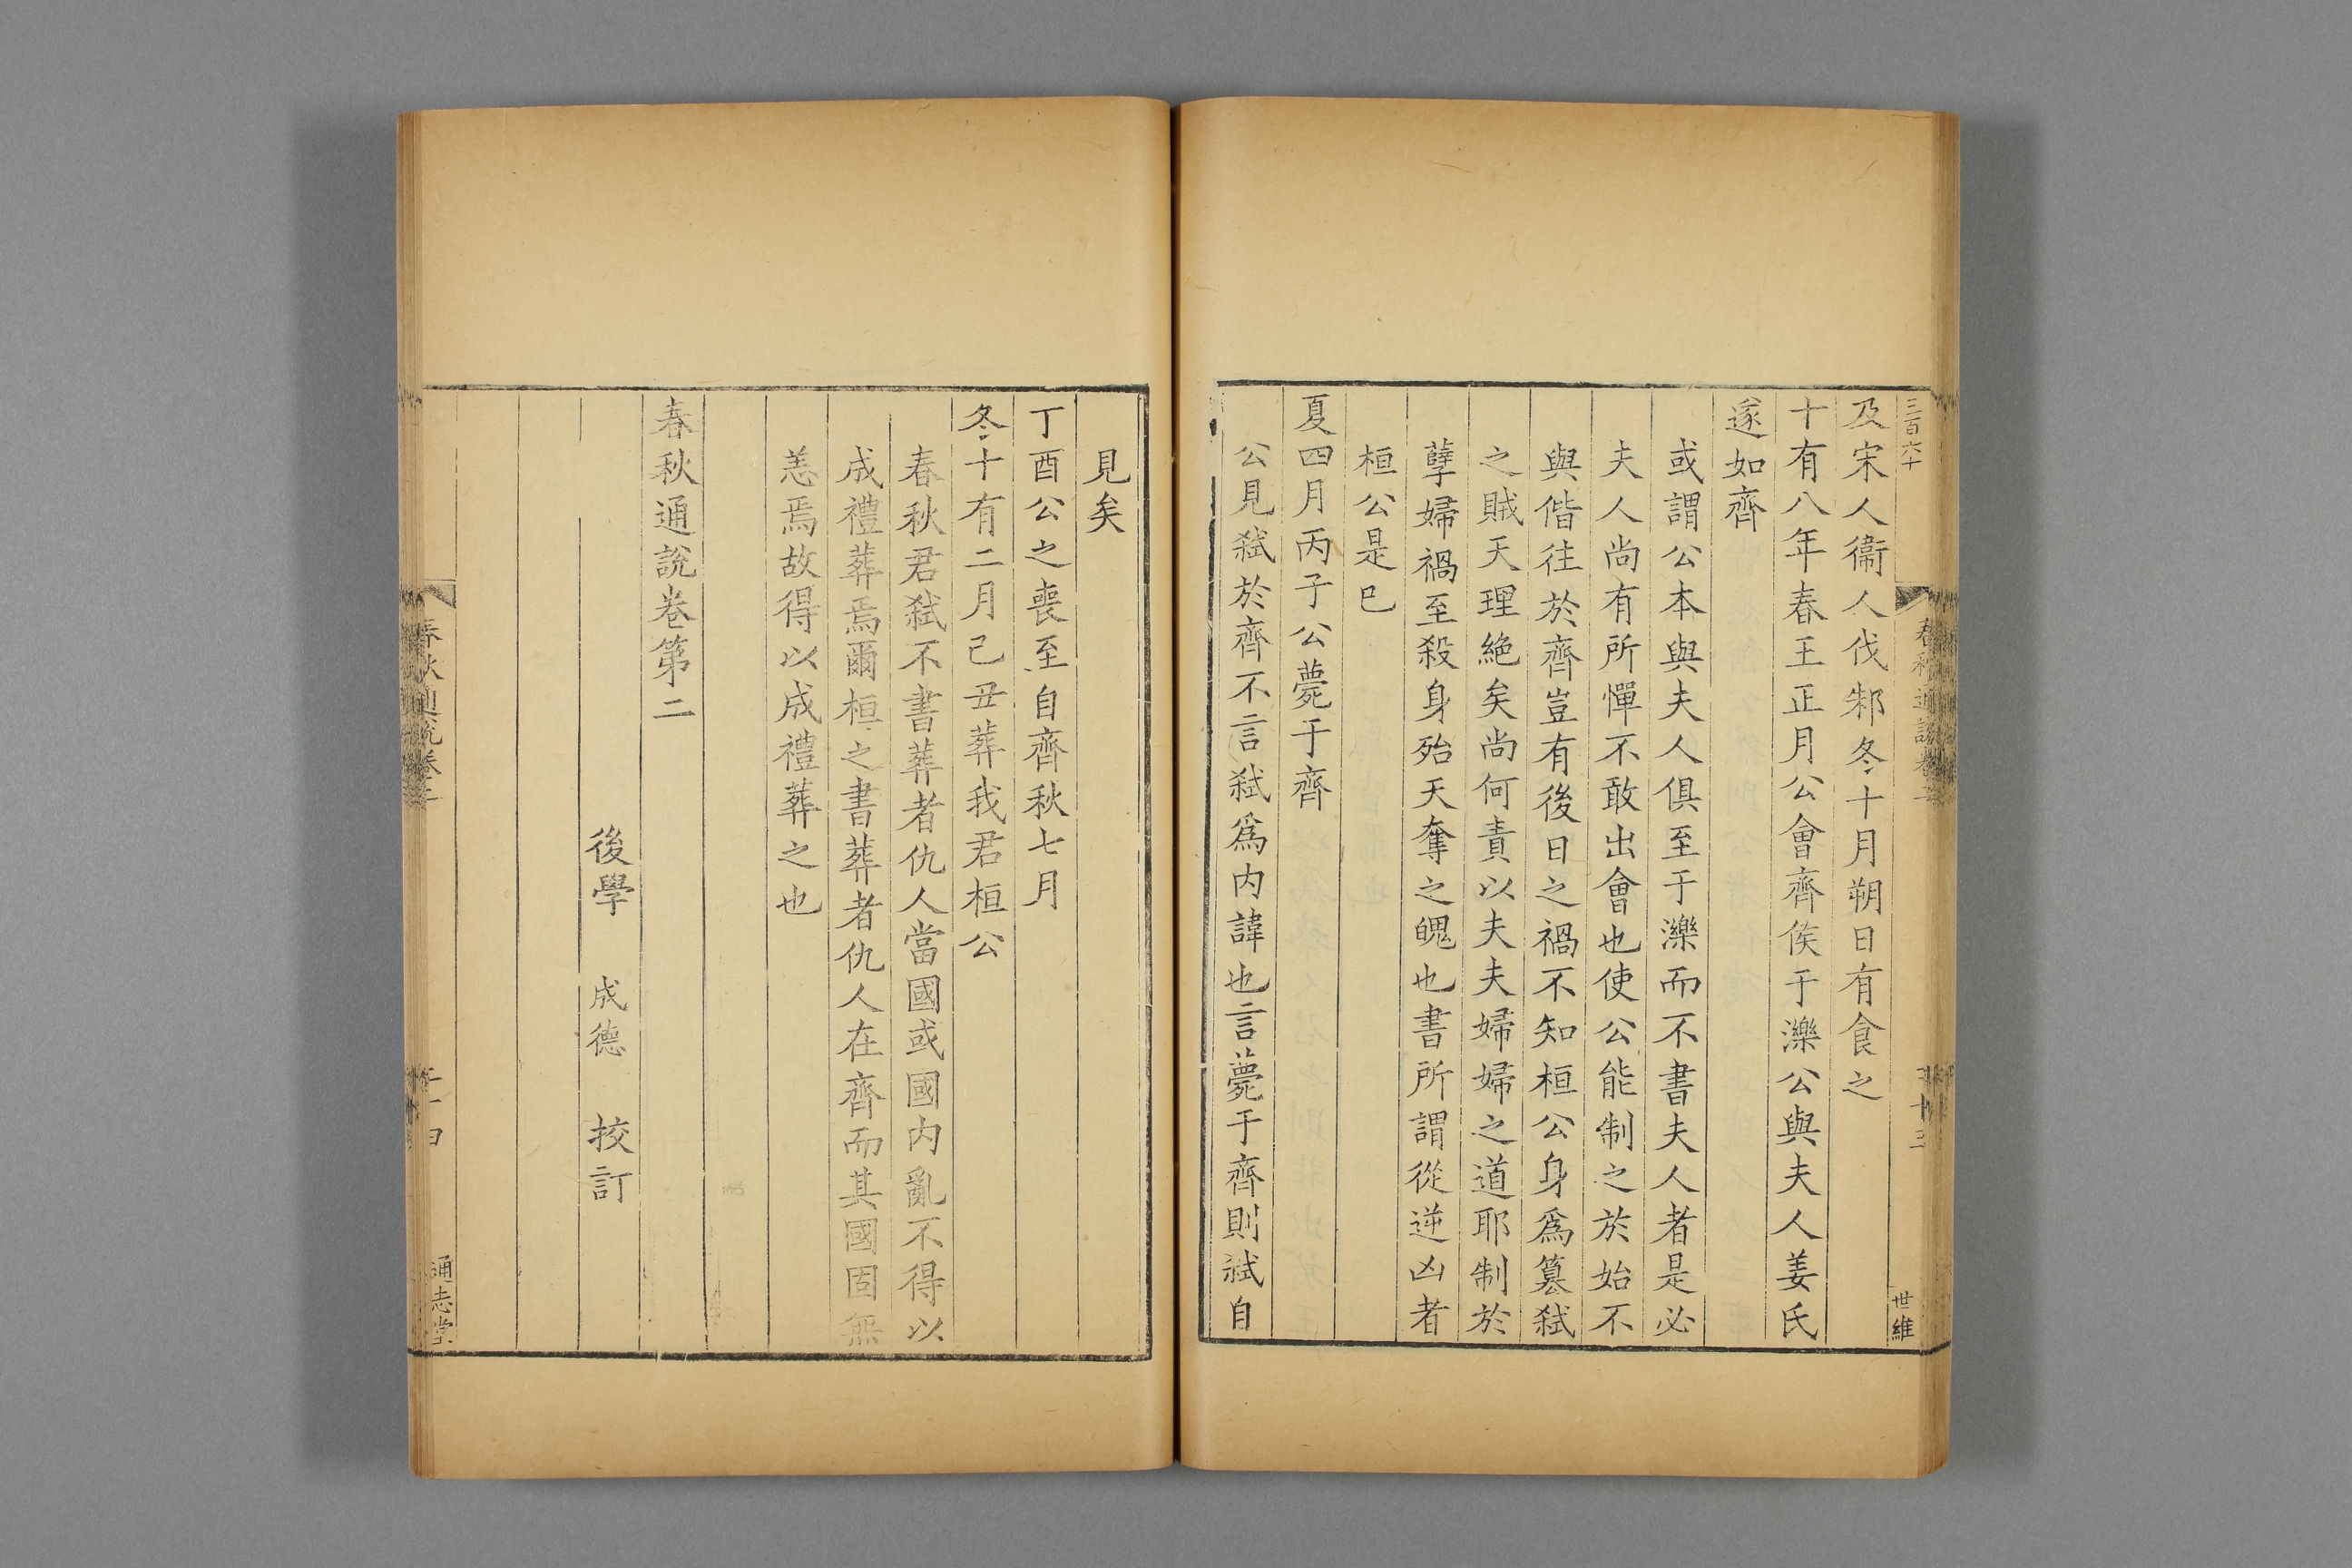 三百六十
春秋通說卷二
二十三
世維
及宋人衞人伐邾冬十月朔日有食之
十有八年春王正月公會齊侯于濼公與夫人姜氏
遂如齊
或謂公本與夫人俱至于濼而不書夫人者是必
夫人尚有所憚不敢出會也使公能制之於始不
與偕往於齊豈有後日之禍不知桓公身爲簒弑
之賊天理絶矣尚何責以夫夫婦婦之道耶制於
孽婦禍至殺身殆天奪之魄也書所謂從逆凶者
桓公是巳
夏四月丙子公薨于齊
公見弑於齊不言弑爲内諱也言薨于齊則弑自
見矣
丁酉公之喪至自齊秋七月
冬十有二月己丑葬我君桓公
春秋君弑不書葬者仇人當國或國内亂不得以
成禮葬焉爾桓之書葬者仇人在齊而其國固無
恙焉故得以成禮葬之也
春秋通說卷第二
後學 成德 挍訂
春秋通說卷二
二十四
通志堂